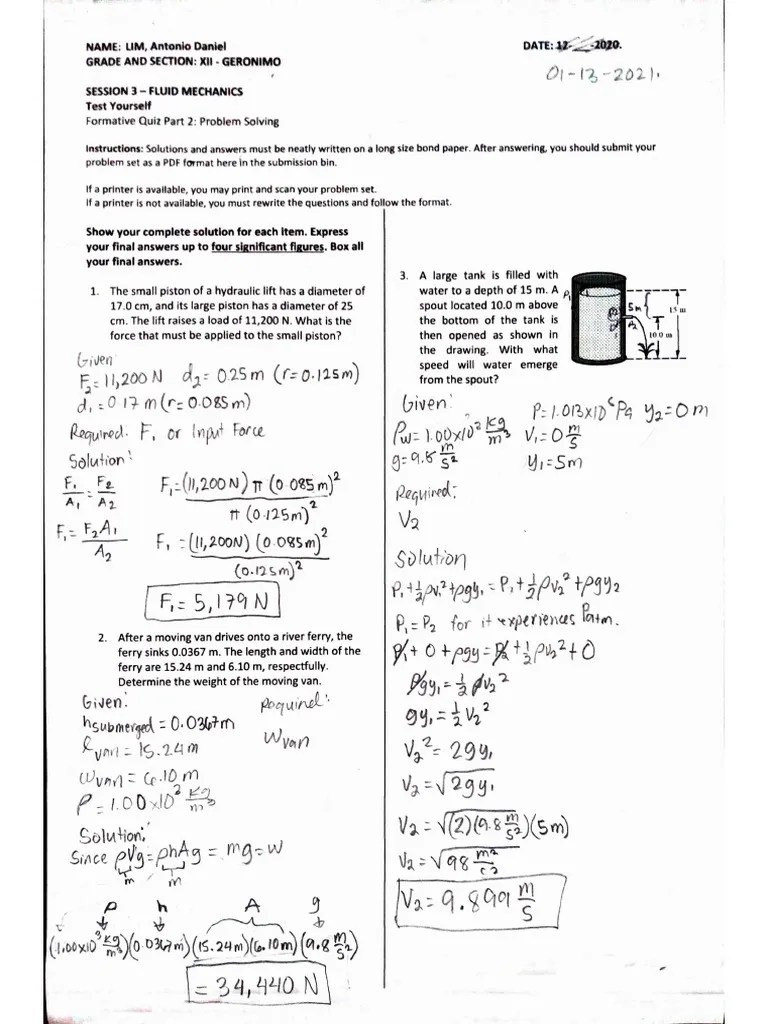 NAME: LIM, Antonio Daniel
GRADE AND SECTION: XII - GERONIMO
DATE: 12-  -2020.
01-13-2021.
SESSION 3 – FLUID MECHANICS
Test Yourself
Formative Quiz Part 2: Problem Solving
Instructions: Solutions and answers must be neatly written on a long size bond paper. After answering, you should submit your
problem set as a PDF format here in the submission bin.
If a printer is available, you may print and scan your problem set.
If a printer is not available, you must rewrite the questions and follow the format.
Show your complete solution for each item. Express
your final answers up to four significant figures. Box all
your final answers.
1. The small piston of a hydraulic lift has a diameter of
17.0 cm, and its large piston has a diameter of 25
cm. The lift raises a load of 11,200 N. What is the
force that must be applied to the small piston?
Given
F₂= 11,200 N d₂= 0.25m (r=0.125m)
d₁= 0.17 m (r=0.085m)
Required: F₁ or Input Force
Solution:
F₁/A₁ = F₂/A₂
F₁= F₂A₁/A₂
F₁= (11,200N) π (0.085m)² / π (0.125m)²
F₁= (11,200N) (0.085m)² / (0.125m)²
F₁= 5,179 N
2. After a moving van drives onto a river ferry, the
ferry sinks 0.0367 m. The length and width of the
ferry are 15.24 m and 6.10 m, respectfully.
Determine the weight of the moving van.
Given: Required:
hsubmerged = 0.0367m
Wvan
lvan = 15.24m
Wvan = 6.10 m
ρ = 1.00x10² kg/m³
Solution:
Since ρVg = ρhAg = mg = w
m m
ρ h A g
(1.00x10³ kg/m³)(0.0367m)(15.24m)(6.10m)(9.8 m/s²)
= 34,440 N
3. A large tank is filled with
water to a depth of 15 m. A
spout located 10.0 m above
the bottom of the tank is
then opened as shown in
the drawing. With what
speed will water emerge
from the spout?
P₁
5m
15 m
P₂
10.0 m
Given:
P=1.013x10⁵ Pa y₂=0m
ρw=1.00x10² kg/m³ V₁=0 m/s
g=9.8 m/s² y₁=5m
Required:
V₂
Solution
P₁+½ρv₁²+ρgy₁ = P₁+½ρv₂²+ρgy₂
P₁=P₂ for it experiences Patm.
P₁+0+ρgy=P₂+½ρv₂²+0
ρgy₁=½ρv₂²
gy₁=½v₂²
V₂²=2gy₁
V₂=√2gy₁
V₂=√(2)(9.8 m/s²)(5m)
V₂=√98 m²/s²
V₂=9.899 m/s